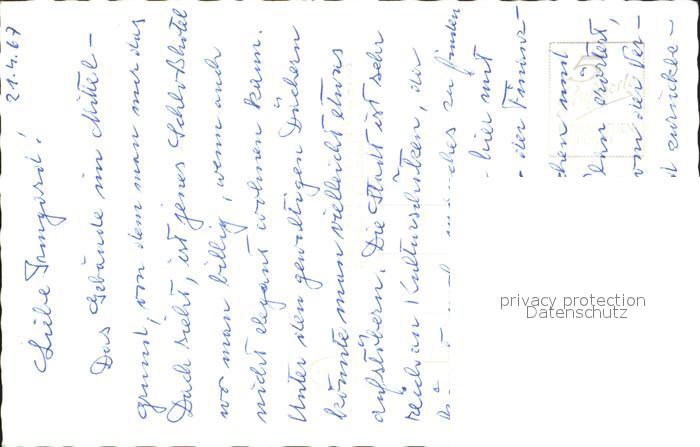 21.4.67
Liebe Irmgard!
Das Gebäude im Mittel-
grund, von dem man nur das
Dach sieht, ist jenes Schloßhotel
wo man billig, wenn auch
nicht elegant wohnen kann.
Unter den gewaltigen Dächern
könnte man vielleicht etwas
aufstöbern. Die Stadt ist sehr
reich an Kulturschätzen, die
zu finden
hier mit
der Finanz-
und
erörtert,
von der
zurück
privacy protection
Datenschutz